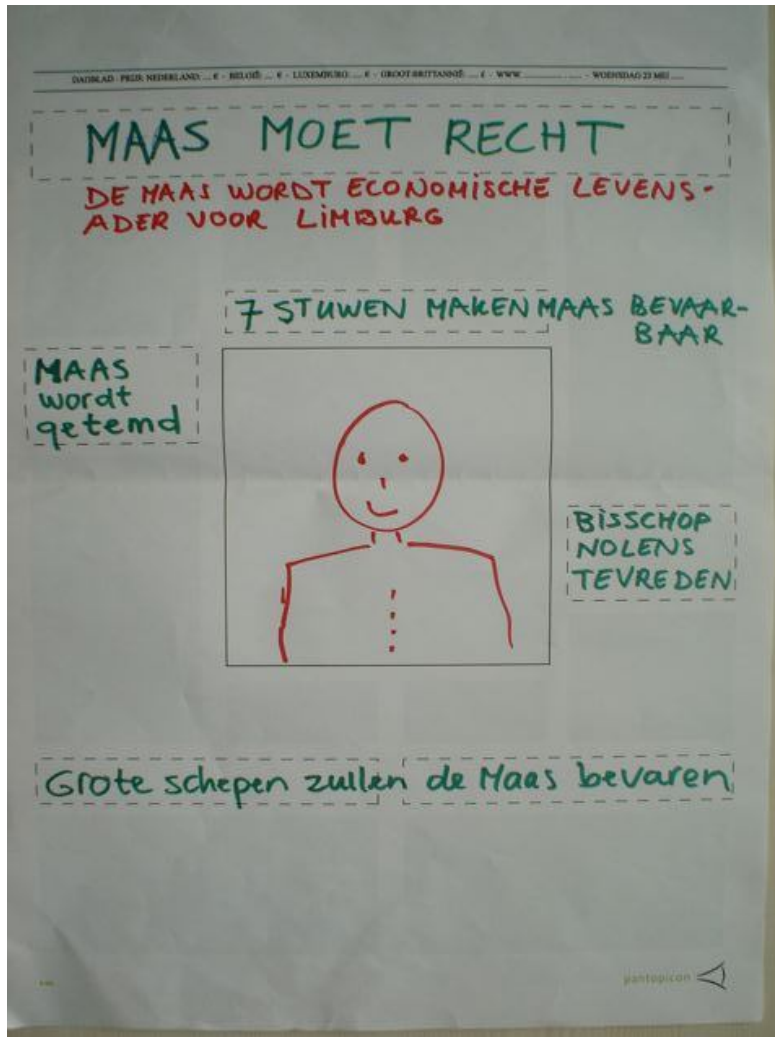 DAGBLAD - PRIJS: NEDERLAND: ... € - BELGIË: ... € - LUXEMBURG: ... € - GROOT-BRITTANNIË: ... £ - WWW. .................. - WOENSDAG 23 MEI ......
MAAS MOET RECHT
DE MAAS WORDT ECONOMISCHE LEVENS-
ADER VOOR LIMBURG
7 STUWEN MAKEN MAAS BEVAAR-
BAAR
MAAS
wordt
getemd
BISSCHOP
NOLENS
TEVREDEN
Grote schepen zullen de Maas bevaren
pantopicon